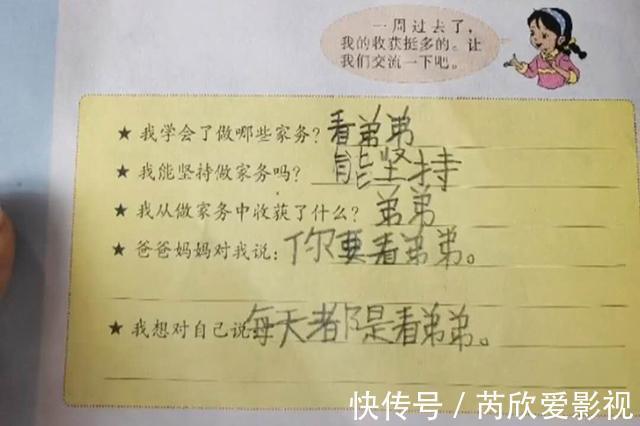 一周过去了，
我的收获挺多的。让
我们交流一下吧。
★ 我学会了做哪些家务？看弟弟
★ 我能坚待做家务吗？能坚持
★ 我从做家务中收获了什么？弟弟
★ 爸爸妈妈对我说：你要看弟弟。
★ 我想对自己说：每天都是看弟弟。
快传号 / 芮欣爱影视